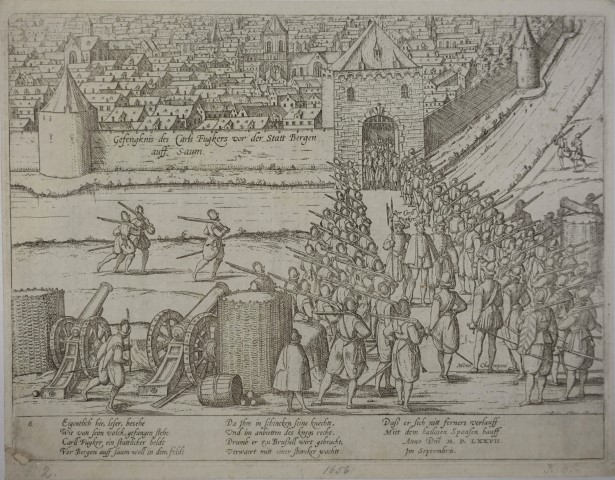 Gefengknis des Carls Fugkers vor der Statt Bergen
auff Saum.
Carl
Monsr Champagni
6
Eigentlich hie, leser, besehe
Wie von sein volck, gefangen stehe
Carll Fugker, ein stattlicher heldt
Vor Bergen auff saum woll in dem feldt
Da Ihn in schincken seine knechtt,
Und im anbietten des kregs recht.
Drumb er zu Brussell wort gebracht,
Verwaert mitt einer starcker wacht
Daß er sich nitt ferners verlauff
Mitt dem hailigen Spansen hauff
Anno Dnĩ M. D. LXXVII
Im Septembri.
2.
1656